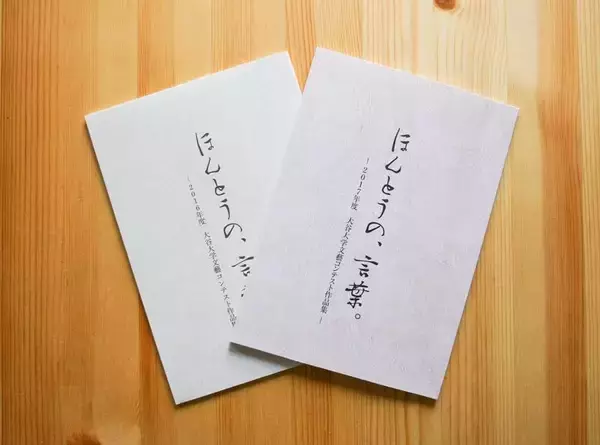 ほんとうの、言葉。
－2017年度　大谷大学文藝コンテスト作品集－
ほんとうの、言
－2016年度　大谷大学文藝コンテスト作品